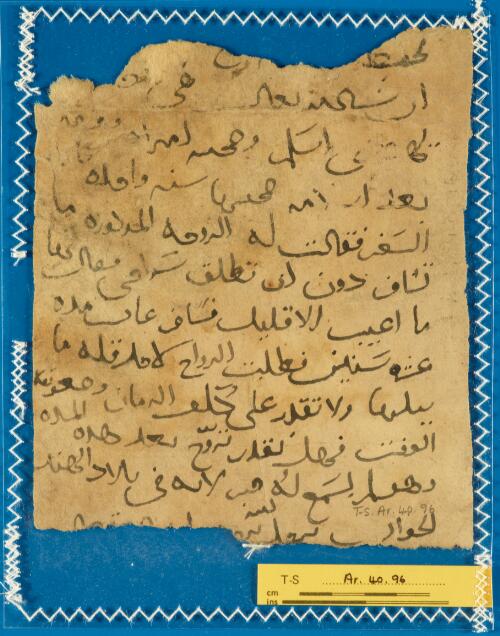 ان شا الله تعالى في
اسمر وصحبته امراه
بعد ان صحبها سنه واحده
السفر فقالت له الزوجه المذكوره ما
تسافر دون ان تطلق سراحي فقال لها
ما اغيب الا قليل فسافر غاب مده
عشر سنين فطلبت الزواج لاجل قله ما
بيدها ولا تقدر على كلف الزمان وصعوبة
الوقت فهل تقدر تزوج بعد هذه المده
وهو لم يسمع له خبر لانه في بلاد الهند
الجواب
T-S. Ar. 40. 96
T-S Ar. 40. 96
cm
ins